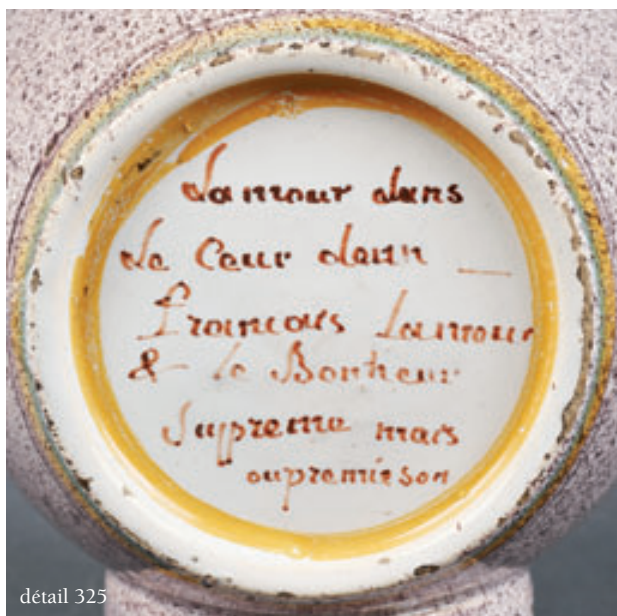 Lamour dans
Le Cœur deun
francais Lamour
& le Bonheur
Supreme mais
oupremieson
détail 325